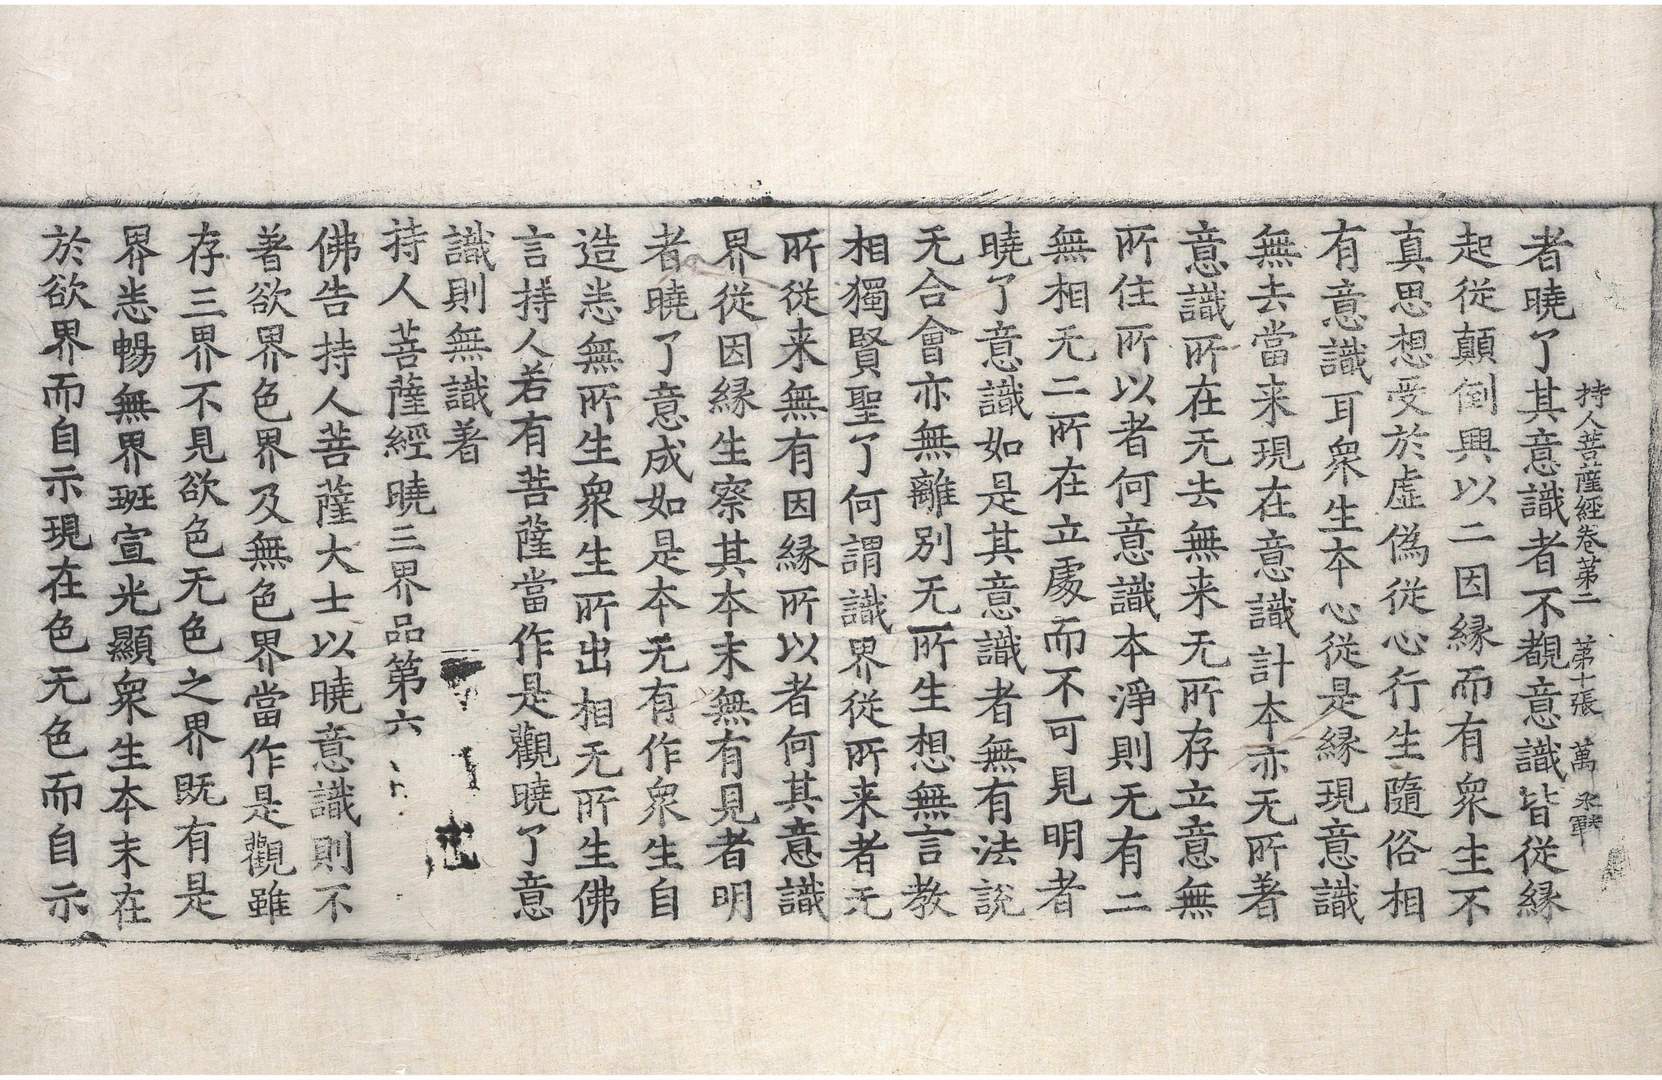 持人菩薩經卷第二 第十張 萬
者曉了其意識者不覩意識皆從縁
起從顛倒興以二因縁而有衆生不
真思想受於虛偽從心行生隨俗相
有意識耳衆生本心從是縁現意識
無去當来現在意識計本亦无所著
意識所在无去無来无所存立意無
所住所以者何意識本淨則无有二
無相无二所在立處而不可見明者
曉了意識如是其意識者無有法說
无合會亦無離別无所生想無言教
相獨賢聖了何謂識界從所来者无
所從来無有因縁所以者何其意識
界從因縁生察其本末無有見者明
者曉了意成如是本无有作衆生自
造恙無所生衆生所出相无所生佛
言持人若有菩薩當作是觀曉了意
識則無識著
持人菩薩經曉三界品第六
佛告持人菩薩大士以曉意識則不
著欲界色界及無色界當作是觀雖
存三界不見欲色无色之界既有是
界恙暢無界班宣光顯衆生本末在
於欲界而自示現在色无色而自示